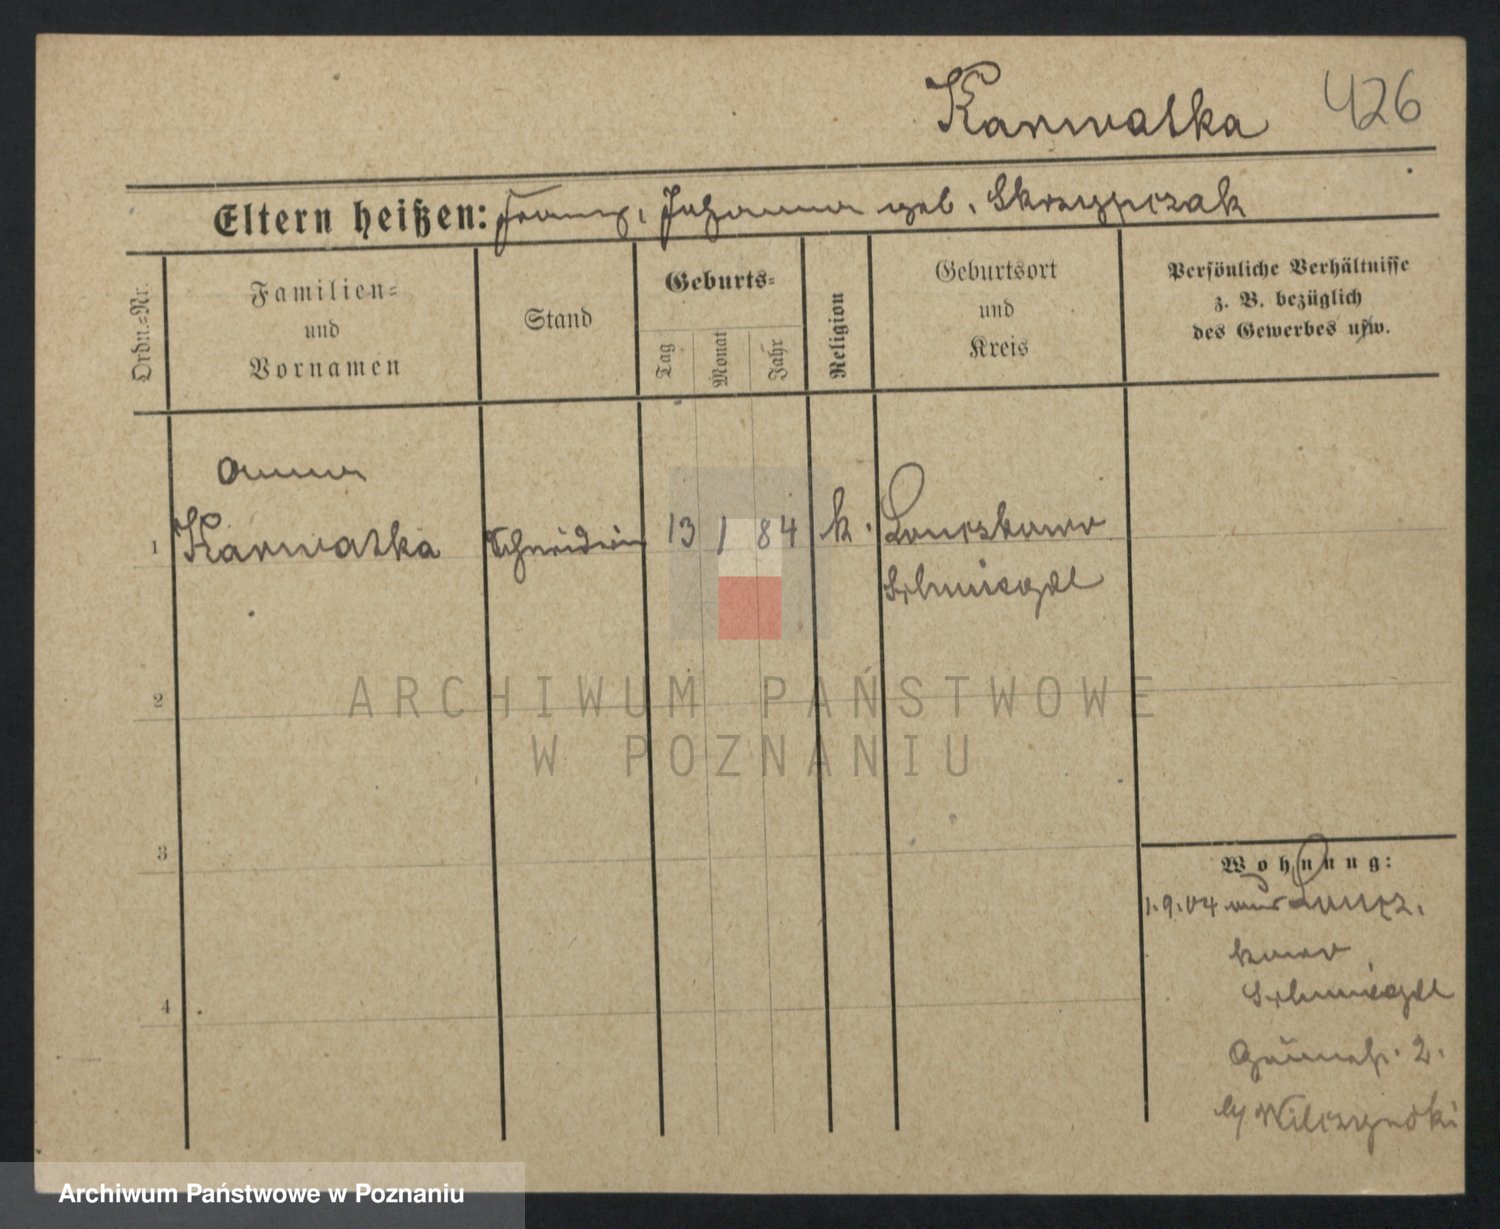 Karwatka 426
Eltern heißen: Franz, Johanna geb. Skrzypczak
Ordn.=Nr.
Familien=
und
Vornamen
Stand
Geburts=
Tag
Monat
Jahr
Religion
Geburtsort
und
Kreis
Persönliche Verhältnisse
z. B. bezüglich
des Gewerbes usw.
Anna
1 Karwatka Schneiderin 13 1 84 k. Bonczkowo
Schmiegel
2
3
4
Wohnung:
1.9.04 aus
kowo
Schmiegel
2.
Wilczynski
ARCHIWUM PAŃSTWOWE
W POZNANIU
Archiwum Państwowe w Poznaniu